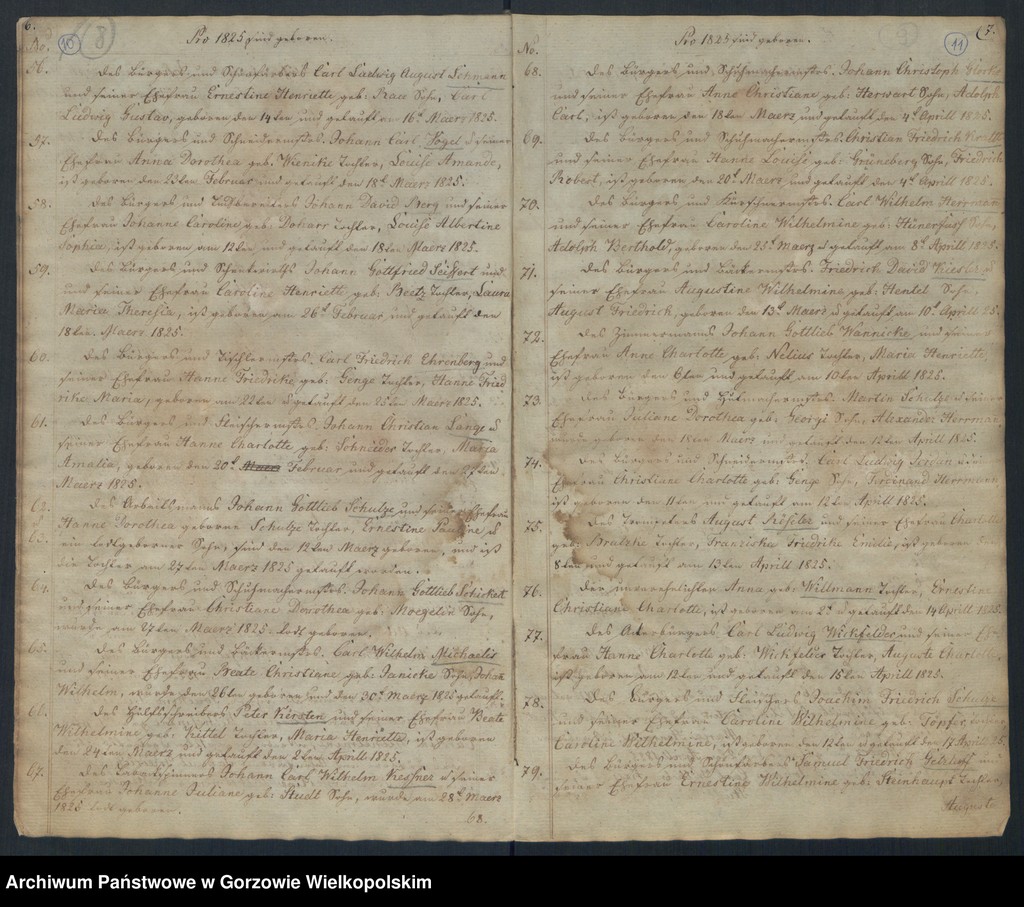 6.
10
(8)
No.
Pro 1825 sind geboren.
56.
Des Bürgers und Carl Ludwig August Lehmann
und seiner Ehefrau Ernestine Henriette geb: Sohn, Carl
Ludwig Gustav, geboren den 14ten und getauft am 16t Maerz 1825.
57.
Des Bürgers und Schneidermstrs. Johann Carl Vogel u seiner
Ehefrau Anna Dorothea geb: Wienike Tochter, Louise Amande,
ist geboren den 23ten Februar und getauft den 18t Maerz 1825.
58.
Des Bürgers und Tuchbereiters Johann David Berg und seiner
Ehefrau Johanne Caroline geb: Tochter, Louise Albertine
Sophia, ist geboren am 12ten und getauft den 18ten Maerz 1825.
59.
Des Bürgers und Schenkwirths Johann Gottfried Seiffert und
und seiner Ehefrau Caroline Henriette geb: Beetz Tochter, Laura
Maria Theresia, ist geboren am 26t Februar und getauft den
18ten Maerz 1825.
60.
Des Bürgers und Tischlermstrs. Carl Friedrich Ehrenberg und
seiner Ehefrau Hanne Friedrike geb: Genge Tochter, Hanne Fried
rike Maria, geboren am 22ten u getauft den 25ten Maerz 1825.
61.
Des Bürgers und Fleischermstrs. Johann Christian Lange u
seiner Ehefrau Hanne Charlotte geb: Schneider Tochter, Maria
Amalia, geboren den 20t Februar und getauft den
Maerz 1825.
62.
u
63.
Des Arbeitsmanns Johann Gottlieb Schulze und seiner Ehefrau
Hanne Dorothea geborene Schulze Tochter, Ernestine Pauline u
ein todtgeborner Sohn, sind den 12ten Maerz geboren, und ist
die Tochter am 27ten Maerz 1825 getauft worden.
64.
Des Bürgers und Schuhmachermstrs. Johann Gottlieb Schickert
und seiner Ehefrau Christiane Dorothea geb: Moegelin Sohn,
wurde am 27ten Maerz 1825 todt geboren.
65.
Des Bürgers und Bäckermstrs. Carl Wilhelm Michaelis
und seiner Ehefrau Beate Christiane geb: Janicke Sohn, Johan
Wilhelm, wurde den 26ten geboren und den 30t Maerz 1825 getauft.
66.
Des Hülfsschreibers Peter Kersten und seiner Ehefrau Beate
Wilhelmine geb: Kittel Tochter, Maria Henriette, ist geboren
den 24ten Maerz und getauft den 2ten Aprill 1825.
67.
Des Johann Carl Wilhelm u seiner
Ehefrau Johanne Juliane geb: Studt Sohn, wurde am 28t Maerz
1825 todt geboren.
68.
7.
11
No.
Pro 1825 sind geboren.
68.
Des Bürgers und Schuhmachermstrs. Johann Christoph
und seiner Ehefrau Anne Christiane geb: Herwart Sohn, Adolph
Carl, ist geboren den 18ten Maerz und getauft den 4t Aprill 1825.
69.
Des Bürgers und Schuhmachermstrs. Christian Friedrich
und seiner Ehefrau Hanne Louise geb: Grüneberg Sohn, Friedrich
Robert, ist geboren den 20t Maerz und getauft den 4t Aprill 1825.
70.
Des Bürgers und Kürschnermstrs. Carl Wilhelm Herrman
und seiner Ehefrau Caroline Wilhelmine geb: Hünerfass Sohn,
Adolph Berthold, geboren den 25t Maerz u getauft am 8t Aprill 1825.
71.
Des Bürgers und Bäckermstrs. Friedrich David Kiesler u
seiner Ehefrau Augustine Wilhelmine geb: Hentel Sohn,
August Friedrich, geboren den 13t Maerz u getauft am 10t Aprill 25.
72.
Des Zimmermanns Johann Gottlieb Wannicke und seiner
Ehefrau Anne Charlotte geb: Nelius Tochter, Maria Henriette,
ist geboren den 6ten und getauft am 10ten Aprill 1825.
73.
Des Bürgers und Hutmachermstrs. Martin Schulze u seiner
Ehefrau Juliane Dorothea geb: George Sohn, Alexander Herrman
wurde geboren den 18ten Maerz und getauft den 12ten Aprill 1825.
74.
Des Bürgers und Schneidermstrs. Carl Ludwig
Ehefrau Christiane Charlotte geb: Genge Sohn, Ferdinand Herrmann,
ist geboren den 11ten und getauft am 12ten Aprill 1825.
75.
Des Trompeters August Kiesler und seiner Ehefrau Charlotte
geb: Brutzke Tochter, Franziska Friedrike Emilie, ist geboren den
8ten und getauft am 13ten Aprill 1825.
76.
Der unverehelichten Anna geb: Willmann Tochter, Ernestine
Christiane Charlotte, ist geboren am 2t u getauft den 14 Aprill 1825.
77.
Des Ackerbürgers Carl Ludwig Wickfelder und seiner Ehe
frau Hanne Charlotte geb: Wickfelder Tochter, Auguste Charlotte,
ist geboren am 12ten und getauft den 15ten Aprill 1825.
78.
Des Bürgers und Fleischers Joachim Friedrich
und seiner Ehefrau Caroline Wilhelmine geb: Töpfer, Tochter
Caroline Wilhelmine, ist geboren den 12ten u getauft den 17 Aprill 25.
79.
Des Bürgers und Samuel Friedrich und
seiner Ehefrau Ernestine Wilhelmine geb: Steinhaupt Tochter,
Auguste
Archiwum Państwowe w Gorzowie Wielkopolskim